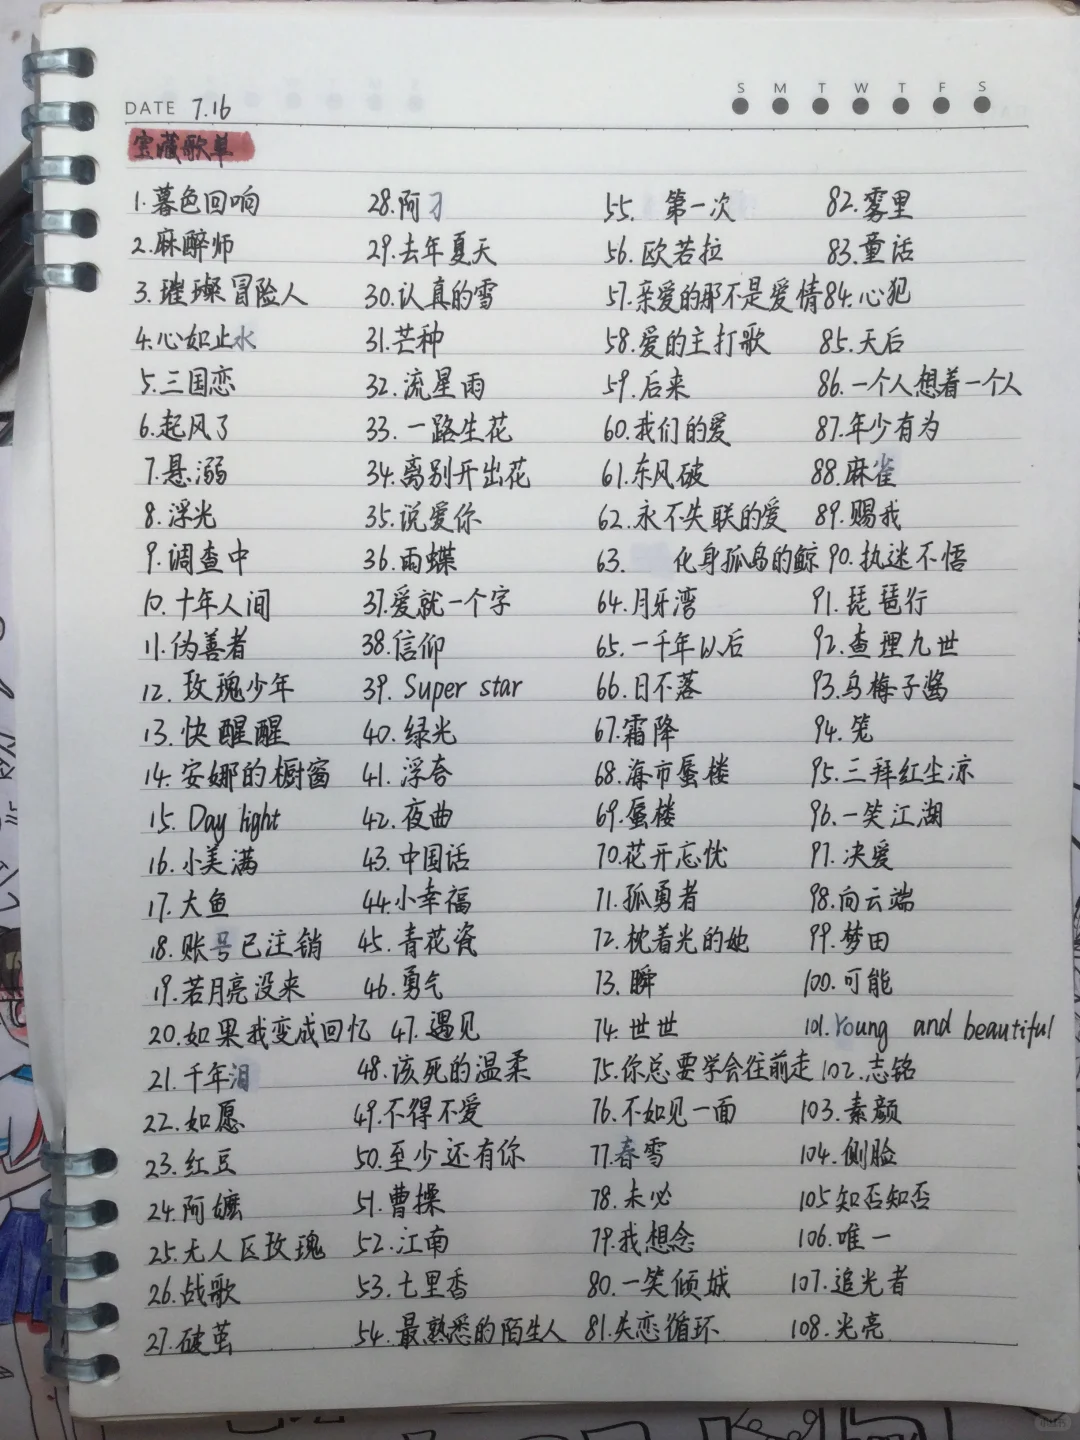 DATE 7.16
S M T W T F S
宝藏歌单
1.暮色回响
2.麻醉师
3.璀璨冒险人
4.心如止水
5.三国恋
6.起风了
7.悬溺
8.浮光
9.调查中
10.十年人间
11.伪善者
12.玫瑰少年
13.快醒醒
14.安娜的橱窗
15.Day light
16.小美满
17.大鱼
18.账号已注销
19.若月亮没来
20.如果我变成回忆
21.千年泪
22.如愿
23.红豆
24.阿嬷
25.无人区玫瑰
26.战歌
27.破茧
28.阿刁
29.去年夏天
30.认真的雪
31.芒种
32.流星雨
33.一路生花
34.离别开出花
35.说爱你
36.雨蝶
37.爱就一个字
38.信仰
39.Super star
40.绿光
41.浮夸
42.夜曲
43.中国话
44.小幸福
45.青花瓷
46.勇气
47.遇见
48.该死的温柔
49.不得不爱
50.至少还有你
51.曹操
52.江南
53.七里香
54.最熟悉的陌生人
55.第一次
56.欧若拉
57.亲爱的那不是爱情
58.爱的主打歌
59.后来
60.我们的爱
61.东风破
62.永不失联的爱
63.化身孤岛的鲸
64.月牙湾
65.一千年以后
66.日不落
67.霜降
68.海市蜃楼
69.蜃楼
70.花开忘忧
71.孤勇者
72.枕着光的她
73.瞬
74.世世
75.你总要学会往前走
76.不如见一面
77.春雪
78.未必
79.我想念
80.一笑倾城
81.失恋循环
82.雾里
83.童话
84.心犯
85.天后
86.一个人想着一个人
87.年少有为
88.麻雀
89.赐我
90.执迷不悟
91.琵琶行
92.查理九世
93.乌梅子酱
94.笼
95.三拜红尘凉
96.一笑江湖
97.决爱
98.向云端
99.梦田
100.可能
101.Young and beautiful
102.志铭
103.素颜
104.侧脸
105知否知否
106.唯一
107.追光者
108.光亮